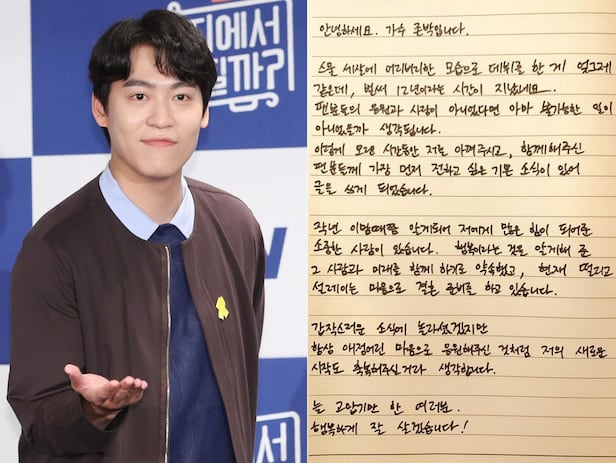 디에서
릴까?
안녕하세요. 가수 존박입니다.
스물 세살에 어리버리한 모습으로 데뷔를 한 게 엊그제
같은데, 벌써 12년이라는 시간이 지났네요.
팬분들의 응원과 사랑이 아니었다면 아마 불가능한 일이
아니었을까 생각됩니다.
이렇게 오랜 시간동안 저를 아껴주시고, 함께해주신
팬분들께 가장 먼저 전하고 싶은 기쁜 소식이 있어
글을 쓰게 되었습니다.
작년 이맘때쯤 알게되어 저에게 많은 힘이 되어준
소중한 사람이 있습니다. 행복이라는 것을 알게해 준
그 사람과 미래를 함께 하기로 약속했고, 현재 떨리고
설레이는 마음으로 결혼 준비를 하고 있습니다.
갑작스러운 소식에 놀라셨겠지만
항상 애정어린 마음으로 응원해주신 것처럼 저의 새로운
시작도 축복해주실거라 생각합니다.
늘 고맙기만 한 여러분.
행복하게 잘 살겠습니다!